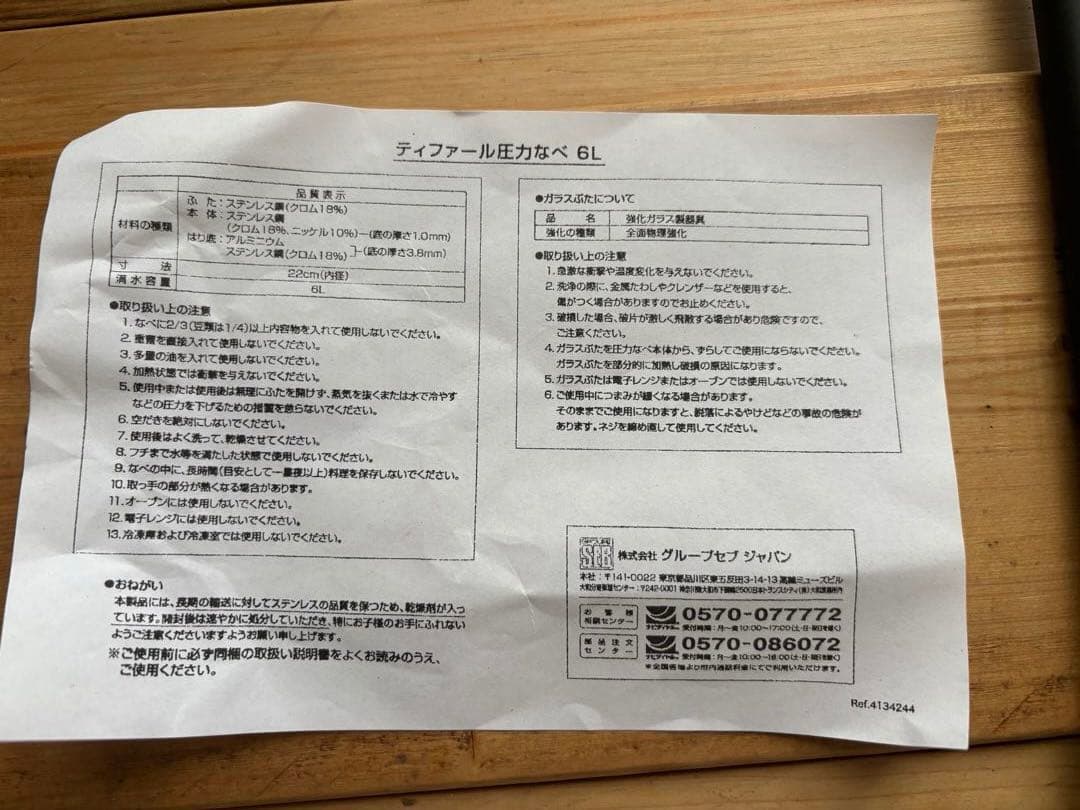 ティファール圧力なべ 6L
品質表示
材料の種類
ふ た：ステンレス鋼(クロム18%)
本 体：ステンレス鋼
(クロム18%、ニッケル10%)―(底の厚さ1.0mm)
はり底：アルミニウム
ステンレス鋼(クロム18%)
(底の厚さ3.8mm)
寸 法 22cm(内径)
満水容量 6L
●取り扱い上の注意
1. なべに2/3(豆類は1/4)以上内容物を入れて使用しないでください。
2. 重曹を直接入れて使用しないでください。
3. 多量の油を入れて使用しないでください。
4. 加熱状態では衝撃を与えないでください。
5. 使用中または使用後は無理にふたを開けず、蒸気を抜くまたは水で冷やす
などの圧力を下げるための措置を怠らないでください。
6. 空だきを絶対にしないでください。
7. 使用後はよく洗って、乾燥させてください。
8. フチまで水等を満たした状態で使用しないでください。
9. なべの中に、長時間(目安として一昼夜以上)料理を保存しないでください。
10. 取っ手の部分が熱くなる場合があります。
11. オーブンには使用しないでください。
12. 電子レンジには使用しないでください。
13. 冷凍庫および冷凍室では使用しないでください。
●おねがい
本製品には、長期の輸送に対してステンレスの品質を保つため、乾燥剤が入っ
ています。開封後は速やかに処分していただき、特にお子様のお手にふれない
ようご注意くださいますようお願い申し上げます。
※ご使用前に必ず同梱の取扱い説明書をよくお読みのうえ、
ご使用ください。
●ガラスぶたについて
品 名 強化ガラス製器具
強化の種類 全面物理強化
●取り扱い上の注意
1. 急激な衝撃や温度変化を与えないでください。
2. 洗浄の際に、金属たわしやクレンザーなどを使用すると、
傷がつく場合がありますのでお止めください。
3. 破損した場合、破片が激しく飛散する場合があり危険ですので、
ご注意ください。
4. ガラスぶたを圧力なべ本体から、ずらしてご使用にならないでください。
ガラスぶたを部分的に加熱し破損の原因になります。
5. ガラスぶたは電子レンジまたはオーブンでは使用しないでください。
6. ご使用中につまみが緩くなる場合があります。
そのままでご使用になりますと、脱落によるやけどなどの事故の危険が
あります。ネジを締め直して使用してください。
株式会社 グループセブ ジャパン
本社：〒141-0022 東京都品川区東五反田3-14-13 高輪ミューズビル
お客様
相談センター
ナビダイヤル
0570-077772
受付時間：月～金10:00～17:00(土・日・祝日を除く)
部品注文
センター
ナビダイヤル
0570-086072
受付時間：月～金10:00～16:00(土・日・祝日を除く)
*全国各地より市内通話料金にてご利用いただけます。
Ref.4134244